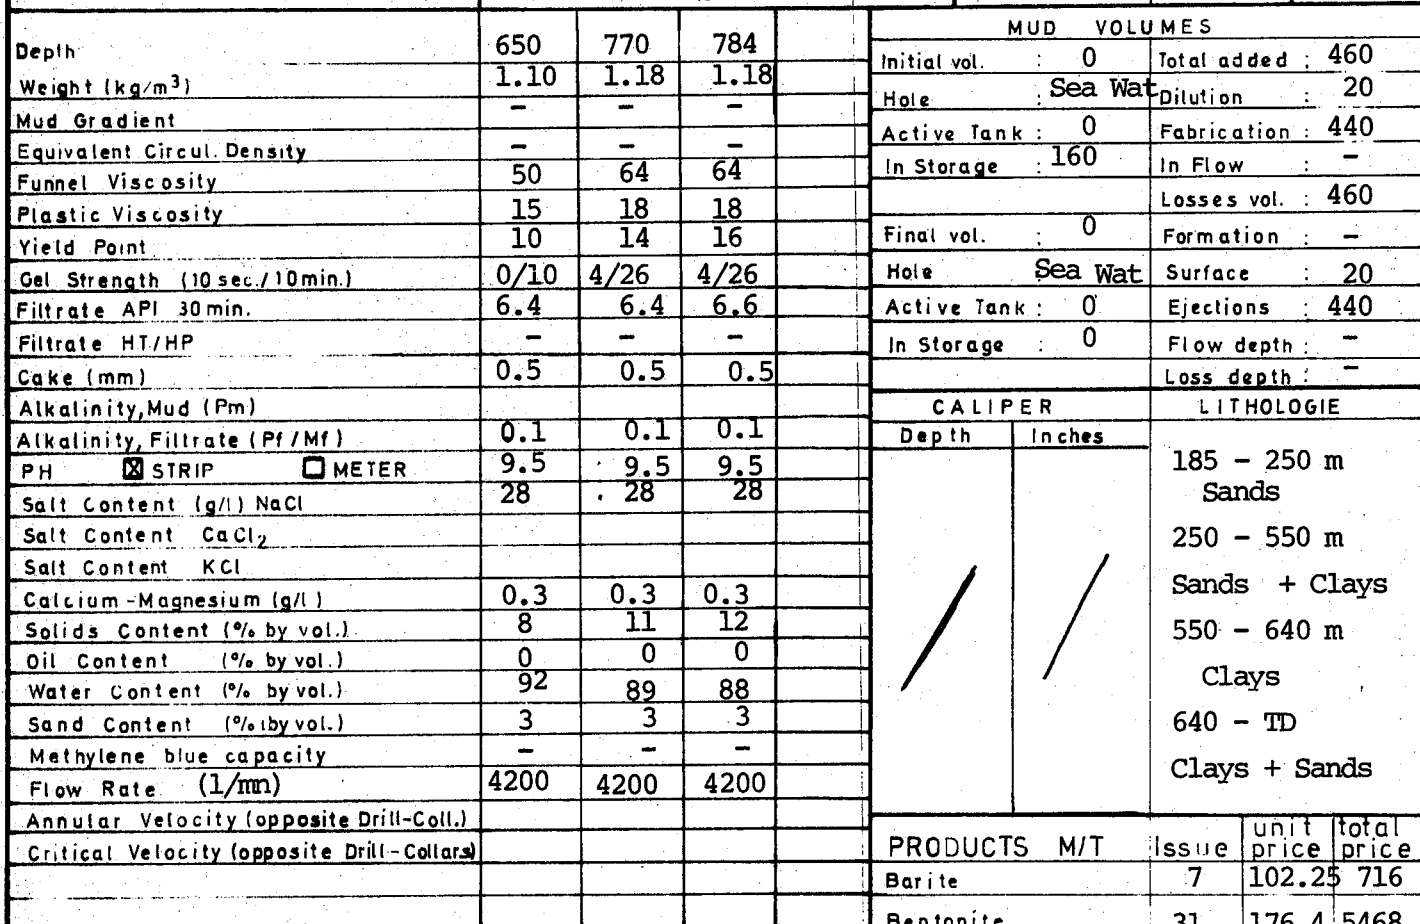 Depth 650 770 784
Weight (kg/m³) 1.10 1.18 1.18
Mud Gradient – – –
Equivalent Circul. Density – – –
Funnel Viscosity 50 64 64
Plastic Viscosity 15 18 18
Yield Point 10 14 16
Gel Strength (10 sec./10min.) 0/10 4/26 4/26
Filtrate API 30 min. 6.4 6.4 6.6
Filtrate HT/HP – – –
Cake (mm) 0.5 0.5 0.5
Alkalinity, Mud (Pm)
Alkalinity, Filtrate (Pf/Mf) 0.1 0.1 0.1
PH ☒ STRIP ☐ METER 9.5 9.5 9.5
Salt Content (g/l) NaCl 28 28 28
Salt Content CaCl₂
Salt Content KCl
Calcium-Magnesium (g/l) 0.3 0.3 0.3
Solids Content (% by vol.) 8 11 12
Oil Content (% by vol.) 0 0 0
Water Content (% by vol.) 92 89 88
Sand Content (% by vol.) 3 3 3
Methylene blue capacity – – –
Flow Rate (l/mn) 4200 4200 4200
Annular Velocity (opposite Drill-Coll.)
Critical Velocity (opposite Drill-Collars)
MUD VOLUMES
Initial vol. : 0 Total added : 460
Hole : Sea Wat Dilution : 20
Active Tank : 0 Fabrication : 440
In Storage : 160 In Flow : –
Losses vol. : 460
Final vol. : 0 Formation : –
Hole Sea Wat Surface : 20
Active Tank : 0 Ejections : 440
In Storage : 0 Flow depth : –
Loss depth : –
CALIPER
Depth Inches
LITHOLOGIE
185 - 250 m
Sands
250 - 550 m
Sands + Clays
550 - 640 m
Clays
640 - TD
Clays + Sands
PRODUCTS M/T Issue unit price total price
Barite 7 102.25 716
Bentonite 31 176.4 5468